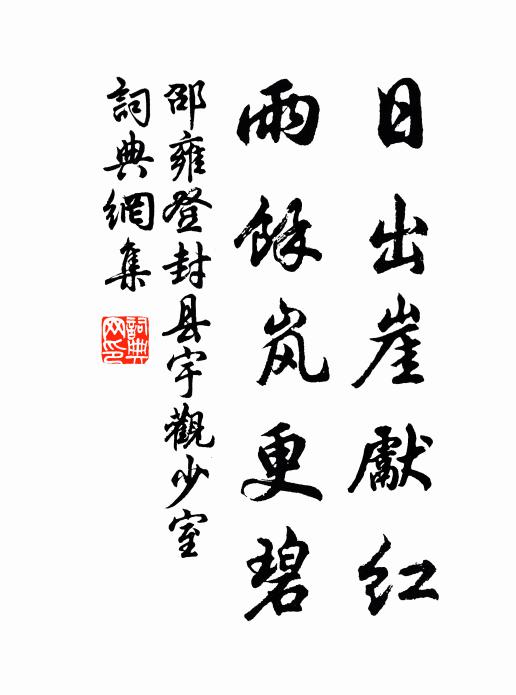 日出崖獻紅
雨餘岚更碧
邵雍登封县宇觀少室
詞典網集
詞典网印